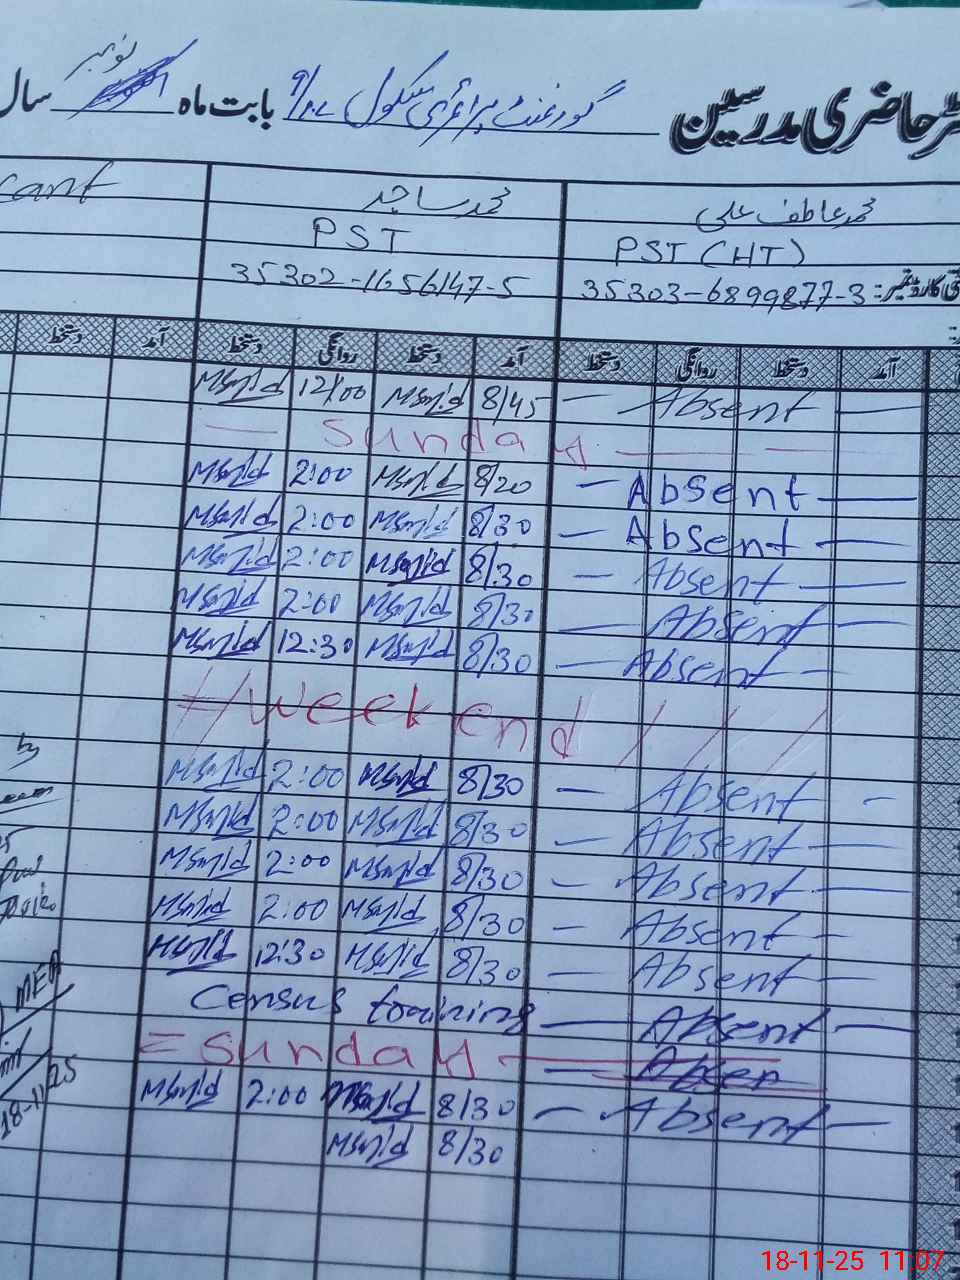 ٹر حاضری مدرسین گورنمنٹ پرائمری سکول بابت ماہ نومبر سال
محمد عاطف علی محمد ساجد cant
PST (HT) PST
قی کارڈ نمبر: 35303-6899877-3 35302-1656147-5
آمد دستخط روانگی دستخط آمد دستخط روانگی دستخط آمد دستخط
Msajid 12/00 Msajid 8/45 — Absent —
— Sunday —
Msajid 2:00 Msajid 8/20 — Absent —
Msajid 2:00 Msajid 8/30 — Absent —
Msajid 2:00 Msajid 8/30 — Absent —
Msajid 2:00 Msajid 8/30 — Absent —
Msajid 12:30 Msajid 8/30 — Absent —
// Weekend / / /
Msajid 2:00 Msajid 8/30 — Absent —
Msajid 2:00 Msajid 8/30 — Absent —
Msajid 2:00 Msajid 8/30 — Absent —
Msajid 2:00 Msajid 8/30 — Absent —
Msajid 12:30 Msajid 8/30 — Absent —
Census training — Absent —
= Sunday — Absen
Msajid 2:00 Msajid 8/30 — Absent —
Msajid 8/30
by
MEA
18-11-25
18-11-25 11:07